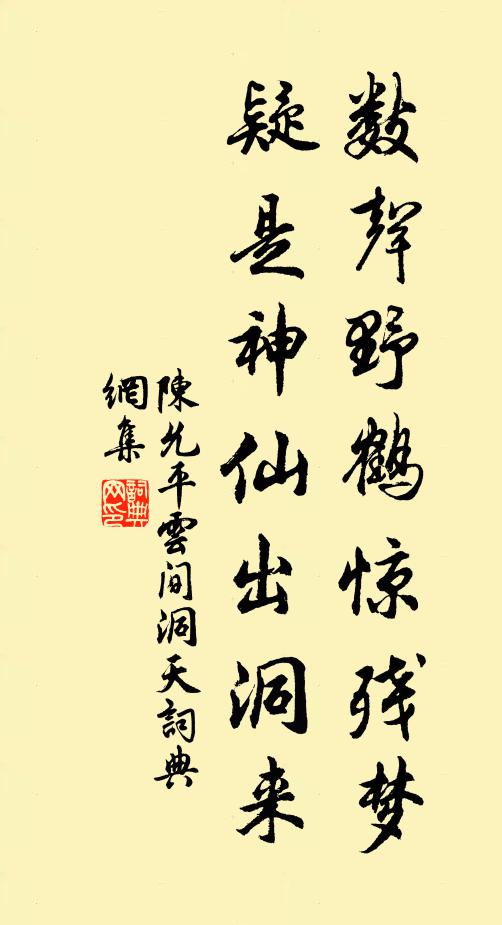 数声野鹤惊残梦
疑是神仙出洞来
陳允平雲间洞天詞典
網集
詞典
网印